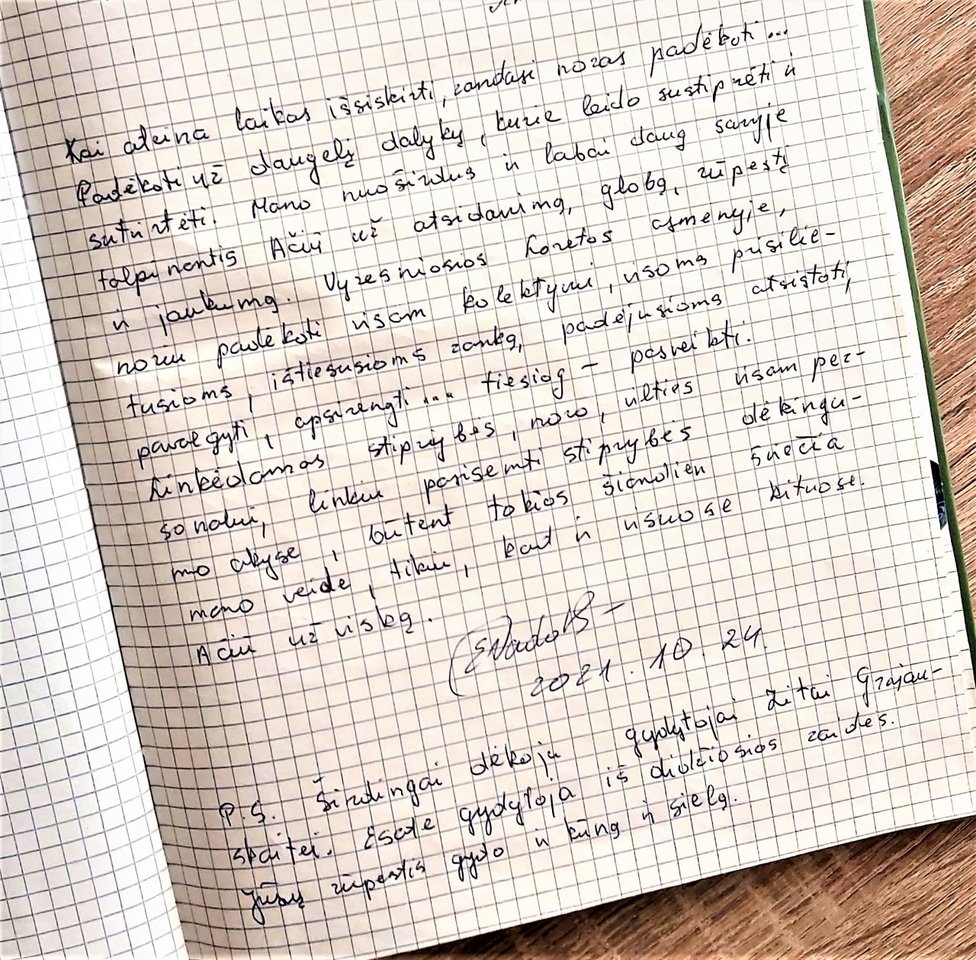 Kai ateina laikas išsiskirti, randasi noras padėkoti...
Padėkoti už daugelį dalykų, kurie leido sustiprėti ir
sutvirtėti. Mano nuoširdus ir labai daug savyje
talpinantis Ačiū už atsidavimą, globą, rūpestį
ir jaukumą. Vyresniosios Loretos asmenyje,
noriu padėkoti visam kolektyvui, visoms prisilie-
tusioms, ištiesusioms ranką, padėjusioms atsistoti,
pavalgyti, apsirengti... tiesiog – pasveikti.
Linkėdamas stiprybės, noro, vilties visam per-
sonalui, linkiu pasisemti stiprybės dėkingu-
mo akyse, būtent tokios šiandien šviečia
mano veide, tikiu, kad ir visuose kituose.
Ačiū už viską.
2021.10.24.
P.S. Širdingai dėkoju gydytojai Zitai Grajau-
skaitei. Esate gydytoja iš didžiosios raidės.
Jūsų rūpestis gydo ir kūną ir sielą.